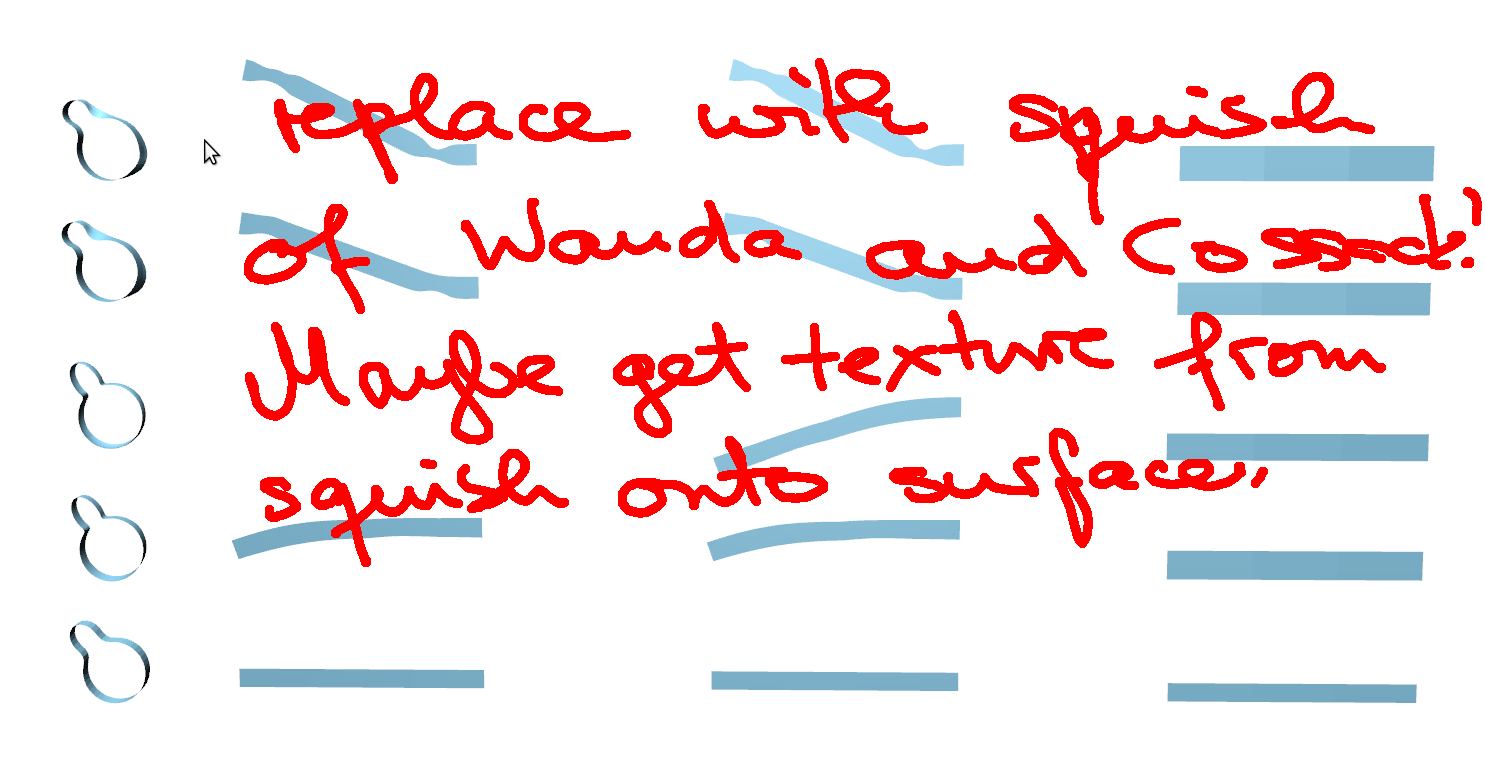 replace with squish
of Wanda and Cossack!
Maybe get texture from
squish onto surface.